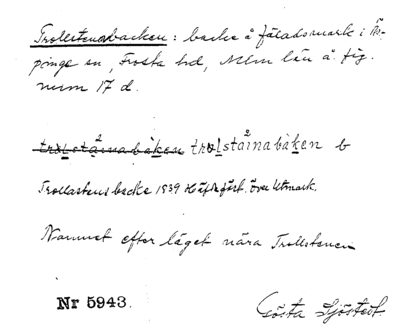 Trollstenabacken: backe å fäladsmark i Äs-
pinge sn, Frosta hd, Mlm län å fig.
num 17 d.
tro̲lstai̲nabàk̲en tro̲l̲stai̲nabàk̲en b
Trollastens backe 1839 Häfdefört. över Utmark.
Namnet efter läget nära Trollstenen
Nr 5943.
Gösta Sjöstedt.